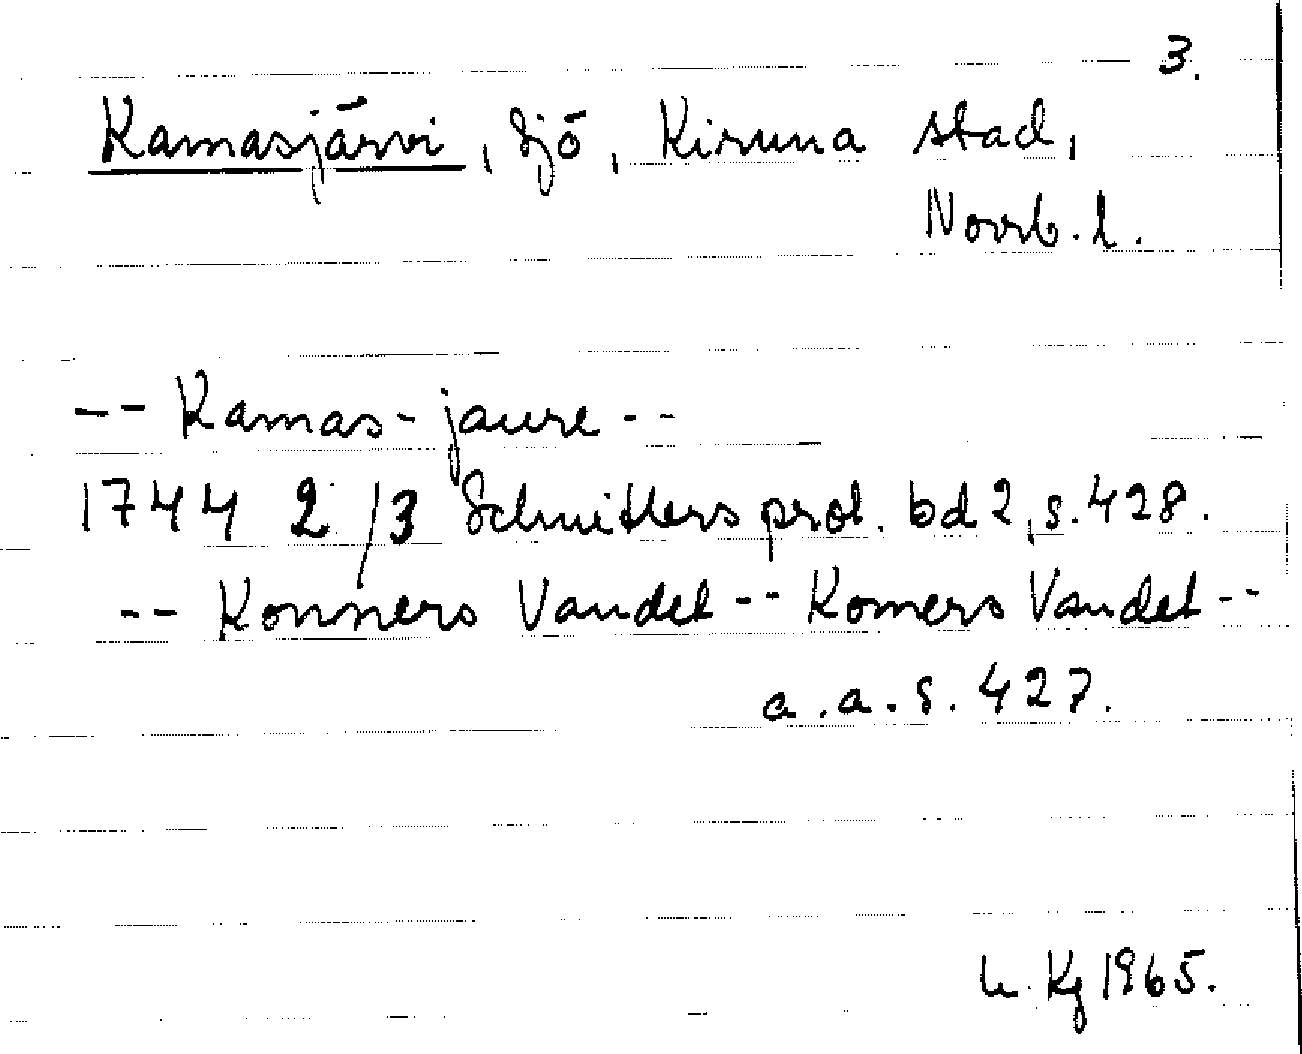 3.
Kamasjärvi, sjö, Kiruna stad,
Norrb. l.
-- Kamas-jaure --
1744 2/3 Schnitlers prot. bd 2, s. 428.
-- Konners Vandet -- Komers Vandet --
a.a. s. 427.
Kg 1965.